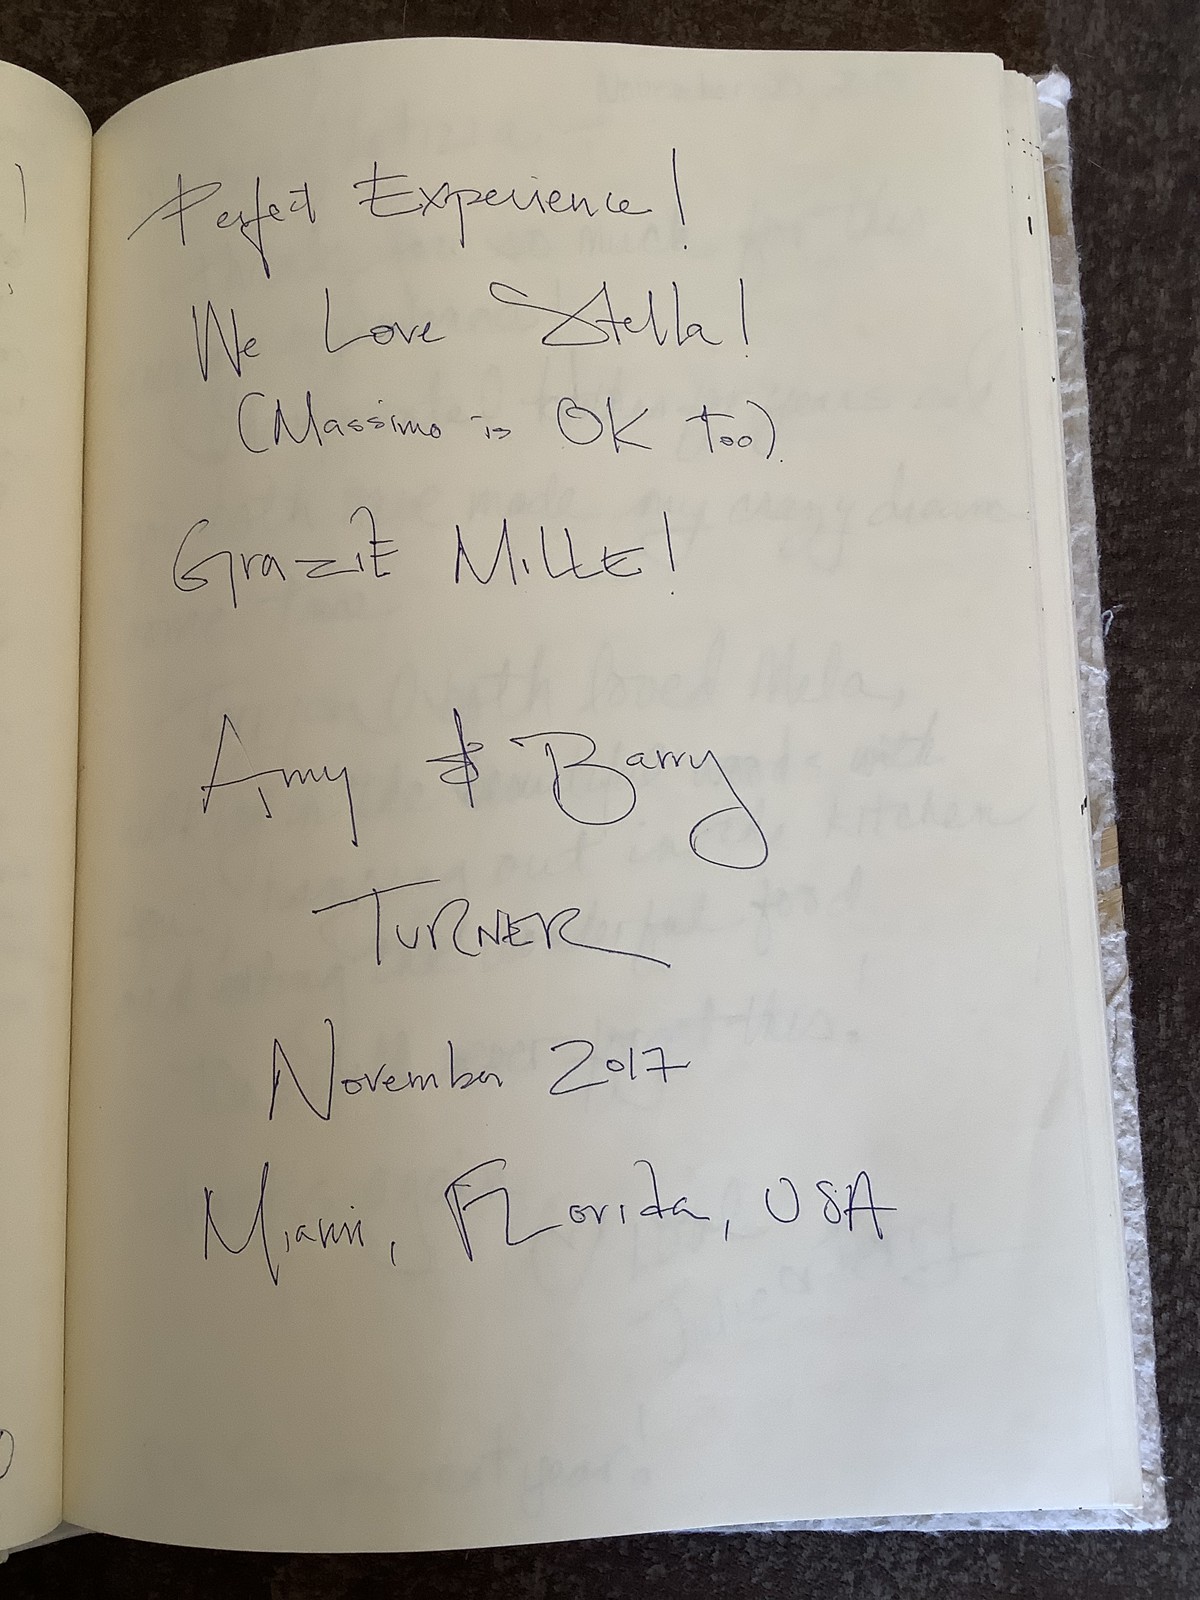 Perfect Experience!
We Love Stella!
(Massimo is OK too)
GraziE MillE!
Amy & Barry
TURNER
November 2017
Miami, Florida, USA